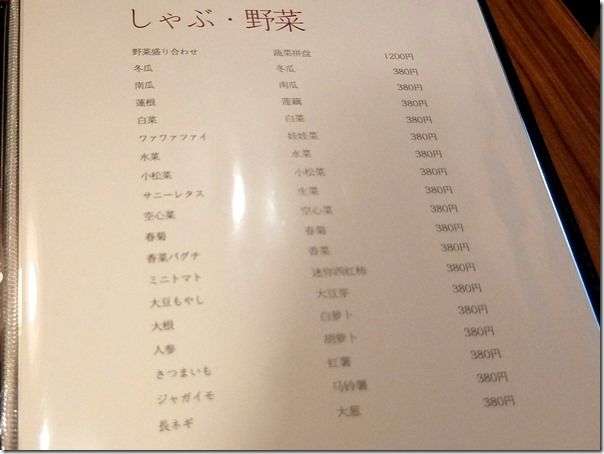 しゃぶ・野菜
野菜盛り合わせ 蔬菜拼盘 1200円
冬瓜 冬瓜 380円
南瓜 南瓜 380円
蓮根 莲藕 380円
白菜 白菜 380円
ワァワァファイ 娃娃菜 380円
水菜 水菜 380円
小松菜 小松菜 380円
サニーレタス 生菜 380円
空心菜 空心菜 380円
春菊 春菊 380円
香菜パグチ 香菜 380円
ミニトマト 迷你西红柿 380円
大豆もやし 大豆芽 380円
大根 白萝卜 380円
人参 胡萝卜 380円
さつまいも 红薯 380円
ジャガイモ 马铃薯 380円
長ネギ 大葱 380円